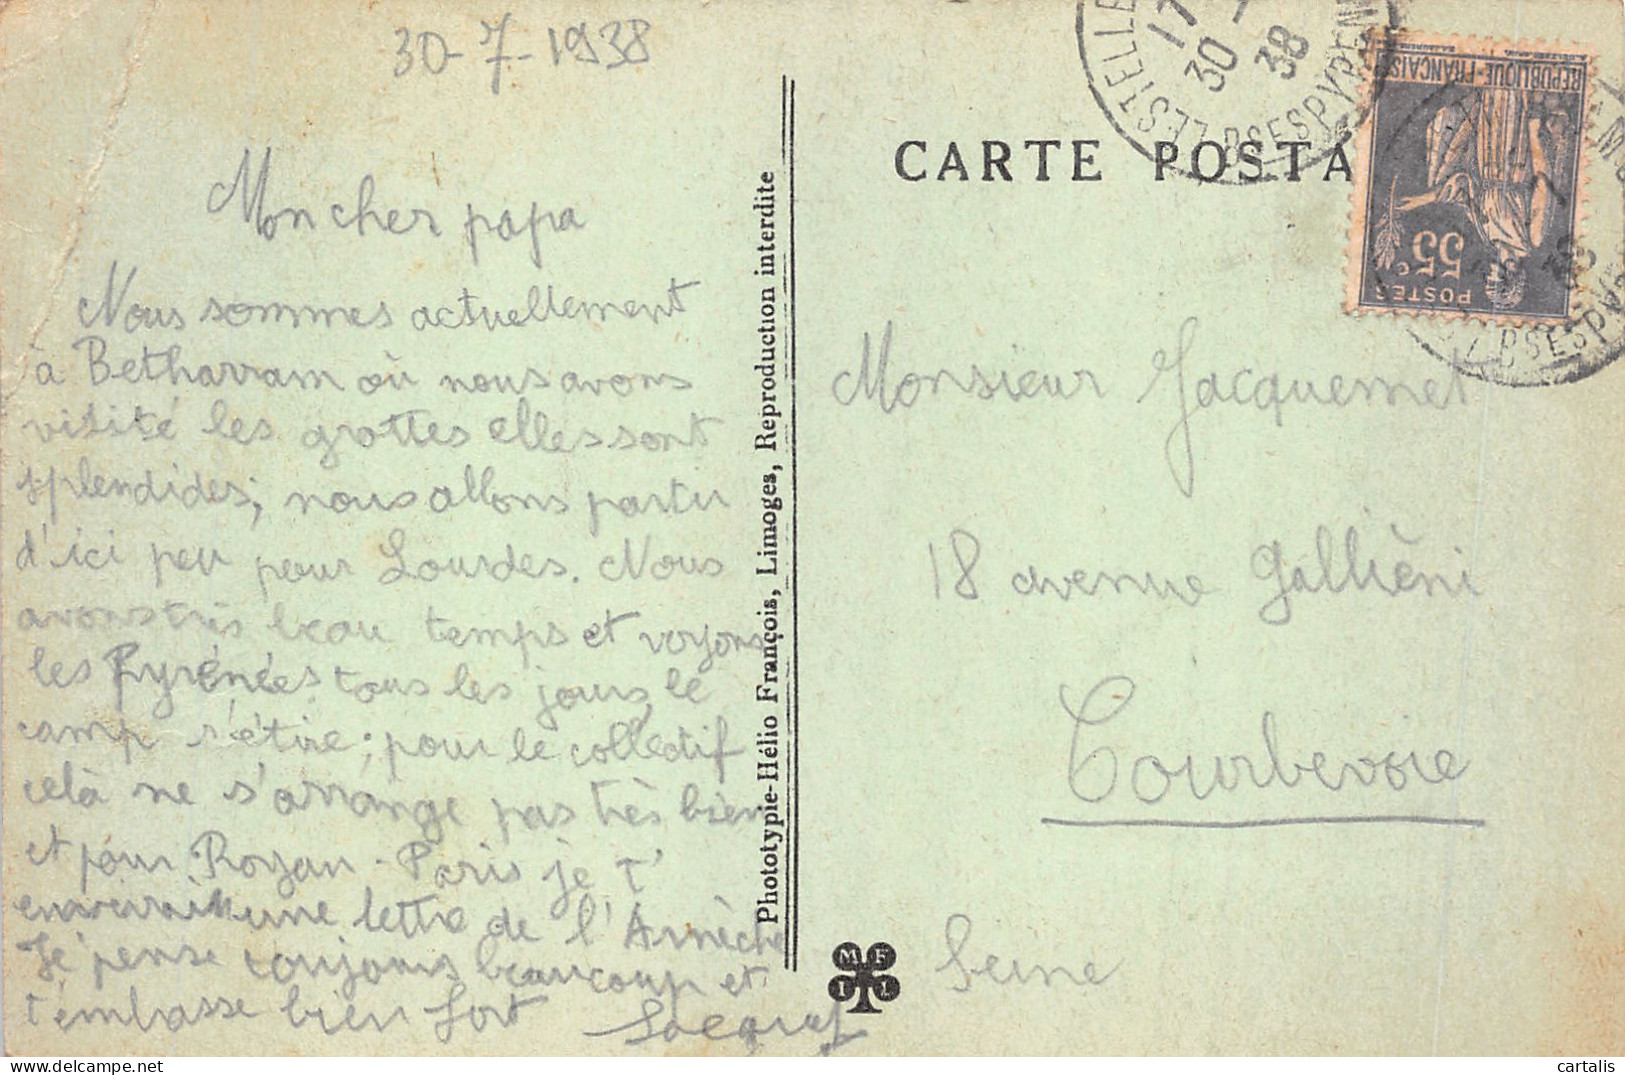 30-7-1938
Mon cher papa
Nous sommes actuellement
à Betharram où nous avons
visité les grottes elles sont
splendides, nous allons partir
d'ici peu pour Lourdes. Nous
avons très beau temps et voyons
les Pyrénées tous les jours, le
camp s'étire ; pour le collectif
celà ne s'arrange pas très bien
et pour Royan - Paris je t'
enverrai une lettre de l'Arrèche
Je pense toujours beaucoup et
t'embrasse bien fort
Phototypie-Hélio François, Limoges, Reproduction interdite
CARTE POSTA
LESTELLE
17
30 - 7
38
BSES PYREN
REPUBLIQUE-FRANÇAISE
55c
POSTES
BSES PYR
Monsieur Jacquemet
18 avenue Galliéni
Courbevoie
Seine
M F
I L
cartalis